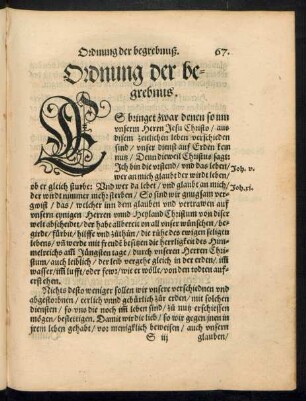 Ordnung der begrebnuß. 67.
Ordnung der be-
grebnus.
ES bringet zwar denen so inn
vnserm Herrn Jesu Christo / aus
disem zeitlichen leben verschieden
sind / vnser dienst auf Erden kein
nus / Denn dieweil Christus sagt:
Ich bin die vrstend / vnd das leben / Joh. v.
wer an mich glaubt der wirdt leben /
ob er gleich stürbe: Vnd wer da lebet / vnd glaubt an mich / Joh. xi.
der wirdt nimmer mehr sterben / So sind wir gnugsam ver-
gwist / das / welcher inn dem glauben vnd vertrawen auf
vnsern eynigen Herren vnnd Heyland Christum von diser
welt abscheidet / der habe allbereit on all vnser wünschen / be-
girde / fürbit / hilffe vnd zuthun / die rühe des ewigen seligen
lebens / vn werde mit freude besitzen die herligkeit des Him-
melreichs am Jüngsten tage / durch vnseren Herren Chri-
stum / auch leiblich / der leib vergehe gleich in der erden / im
wasser / im lufft / oder fewr / wie er wölle / von den todten auf-
erstehen.
Nichts desto weniger sollen wir vnsere verschidnen vnd
abgestorbnen / eerlich vnnd gebürlich zur erden / mit solchen
diensten / so vns die noch im leben sind / zu nutz erschiessen
mögen / bestettigen. Damit wir die lieb / so wir gegen jnen in
jrem leben gehabt / vor menigklich beweisen / auch vnsern
S iij glauben /